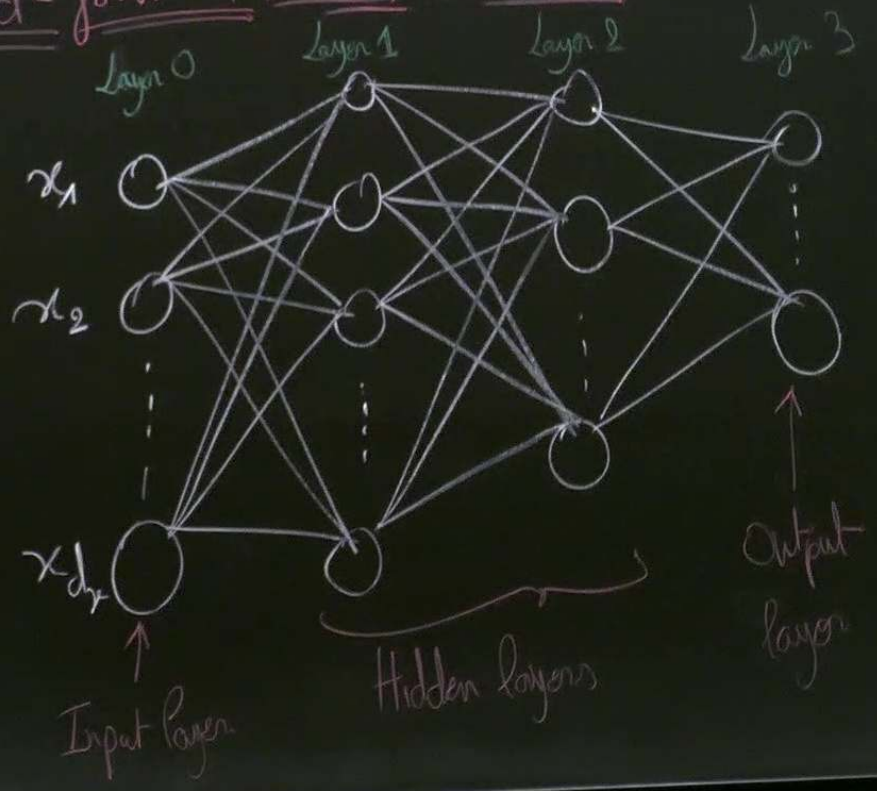 Layer 0
Layer 1
Layer 2
Layer 3
x1
x2
xdx
Input layer
Hidden layers
Output
layer